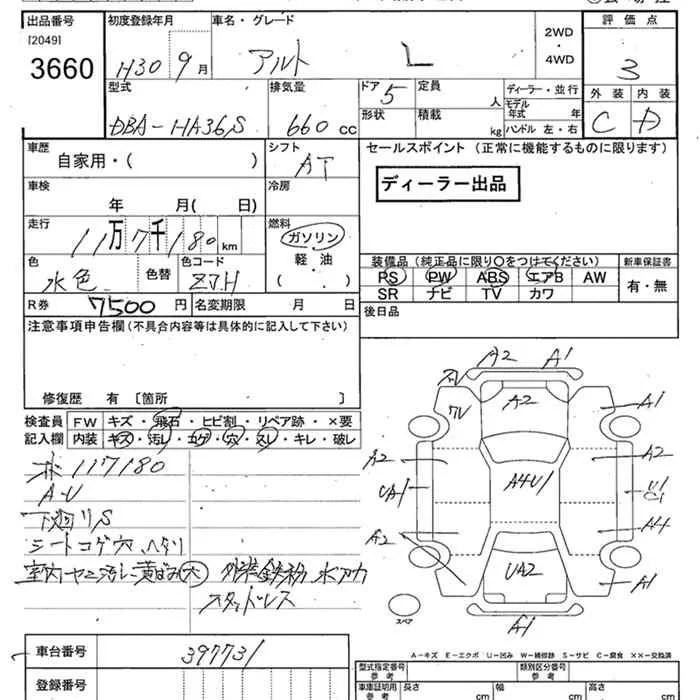 出品番号 初度登録年月 車名・グレード 2WD 評価点
[2049] ・
3660 H30年9月 アルト L 4WD 3
型式 排気量 ドア 5 定員 人 ディーラー・並行 外装 内装
DBA-HA36S 660cc 形状 積載 kg モデル年式 年 C D
ハンドル 左・右
車歴 シフト セールスポイント (正常に機能するものに限ります)
自家用・( ) AT
ディーラー出品
車検 冷房
年 月( 日)
走行 燃料
11万7千180km ガソリン
色 色コード 軽油
水色 色替 ZJH ( ・ )
装備品(純正品に限り○をつけてください) 新車保証書
PS PW ABS エアB AW 有・無
SR ナビ TV カワ
R券 7500円 名変期限 月 日
後日品
注意事項申告欄(不具合内容等は具体的に記入して下さい)
修復歴 有 〔箇所 〕
検査員 FW キズ・飛石・ヒビ割・リペア跡・×要
記入欄 内装 キズ・汚レ・コゲ・穴・スレ・キレ・破レ
117180
A-U
下廻りS
シートコゲ穴、ヘタリ
室内ヤニ汚レ黄ばみ(大) 外装鉄粉 水アカ
スタッドレス
A2 A1
A2 A1
A2 A2
UA1 A4U1 U1 C1
A2 A4
UA2 A1
スペア A1
A-キズ E-エクボ U-凹み W-補修跡 S-サビ C-腐食 ××-交換済
車台番号 397731
登録番号
型式指定番号 参考 類別区分番号 参考
車庫証明用 参考 長さ cm 幅 cm 高さ cm